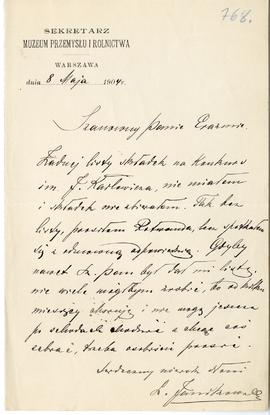 768.
SEKRETARZ
MUZEUM PRZEMYSŁU I ROLNICTWA
WARSZAWA
dnia 8 Maja 1904 r.
Szanowny Panie Erazmie.
Żadnej listy składek na Konkurs
im. J. Karłowicza, nie miałem
i składek nie zbierałem. Tak bez
listy, prosiłem
się z odmowną odpowiedzią. Gdyby
nawet Sz. Pan był dał mi listę,
nie wiele mógłbym zrobić, bo od kilku
miesięcy choruję i nie mogę jeszcze
po schodach chodzić a chcąc coś
zebrać, trzeba osobiście prosić.
Serdeczny uścisk dłoni